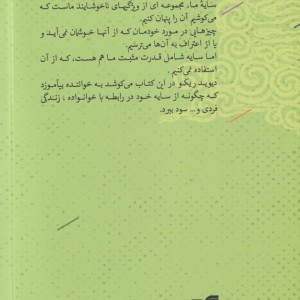 سایهٔ ما، مجموعه ای از ویژگیهای ناخوشایند ماست که
می‌کوشیم آن را پنهان کنیم.
چیزهایی در مورد خودمان که از آنها خوشان نمی‌آید و
یا از اعتراف به آن‌ها می‌ترسیم.
اما سایه شامل قدرت مثبت ما هم هست، که از آن
استفاده نمی‌کنیم.
دیوید ریکو در این کتاب می‌کوشد به خواننده بیاموزد
که چگونه از سایه خود در رابطه با خانواده ، زندگی
فردی و... سود ببرد.